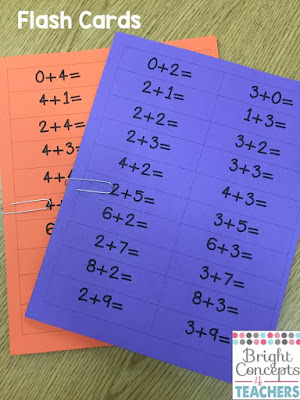 Flash Cards
0+4=
4+1=
2+4=
4+3=
0+2=
2+1=
2+2=
2+3=
4+2=
2+5=
6+2=
2+7=
8+2=
2+9=
3+0=
1+3=
3+2=
3+3=
4+3=
3+5=
6+3=
3+7=
8+3=
3+9=
Bright
Concepts
4
TEACHERS